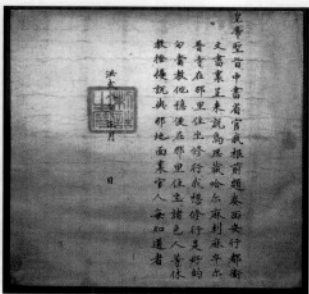 皇帝聖旨中書省官我根前題奏西安行都衛
文書裏呈來說烏思藏哈尔麻剌麻卒尔
普㐌在那里住坐修行我想修行是好的
勾當教他穩便在那里住坐諸色人等休
教搔擾說與那地面裏官人每知道者
洪武 年 月 日